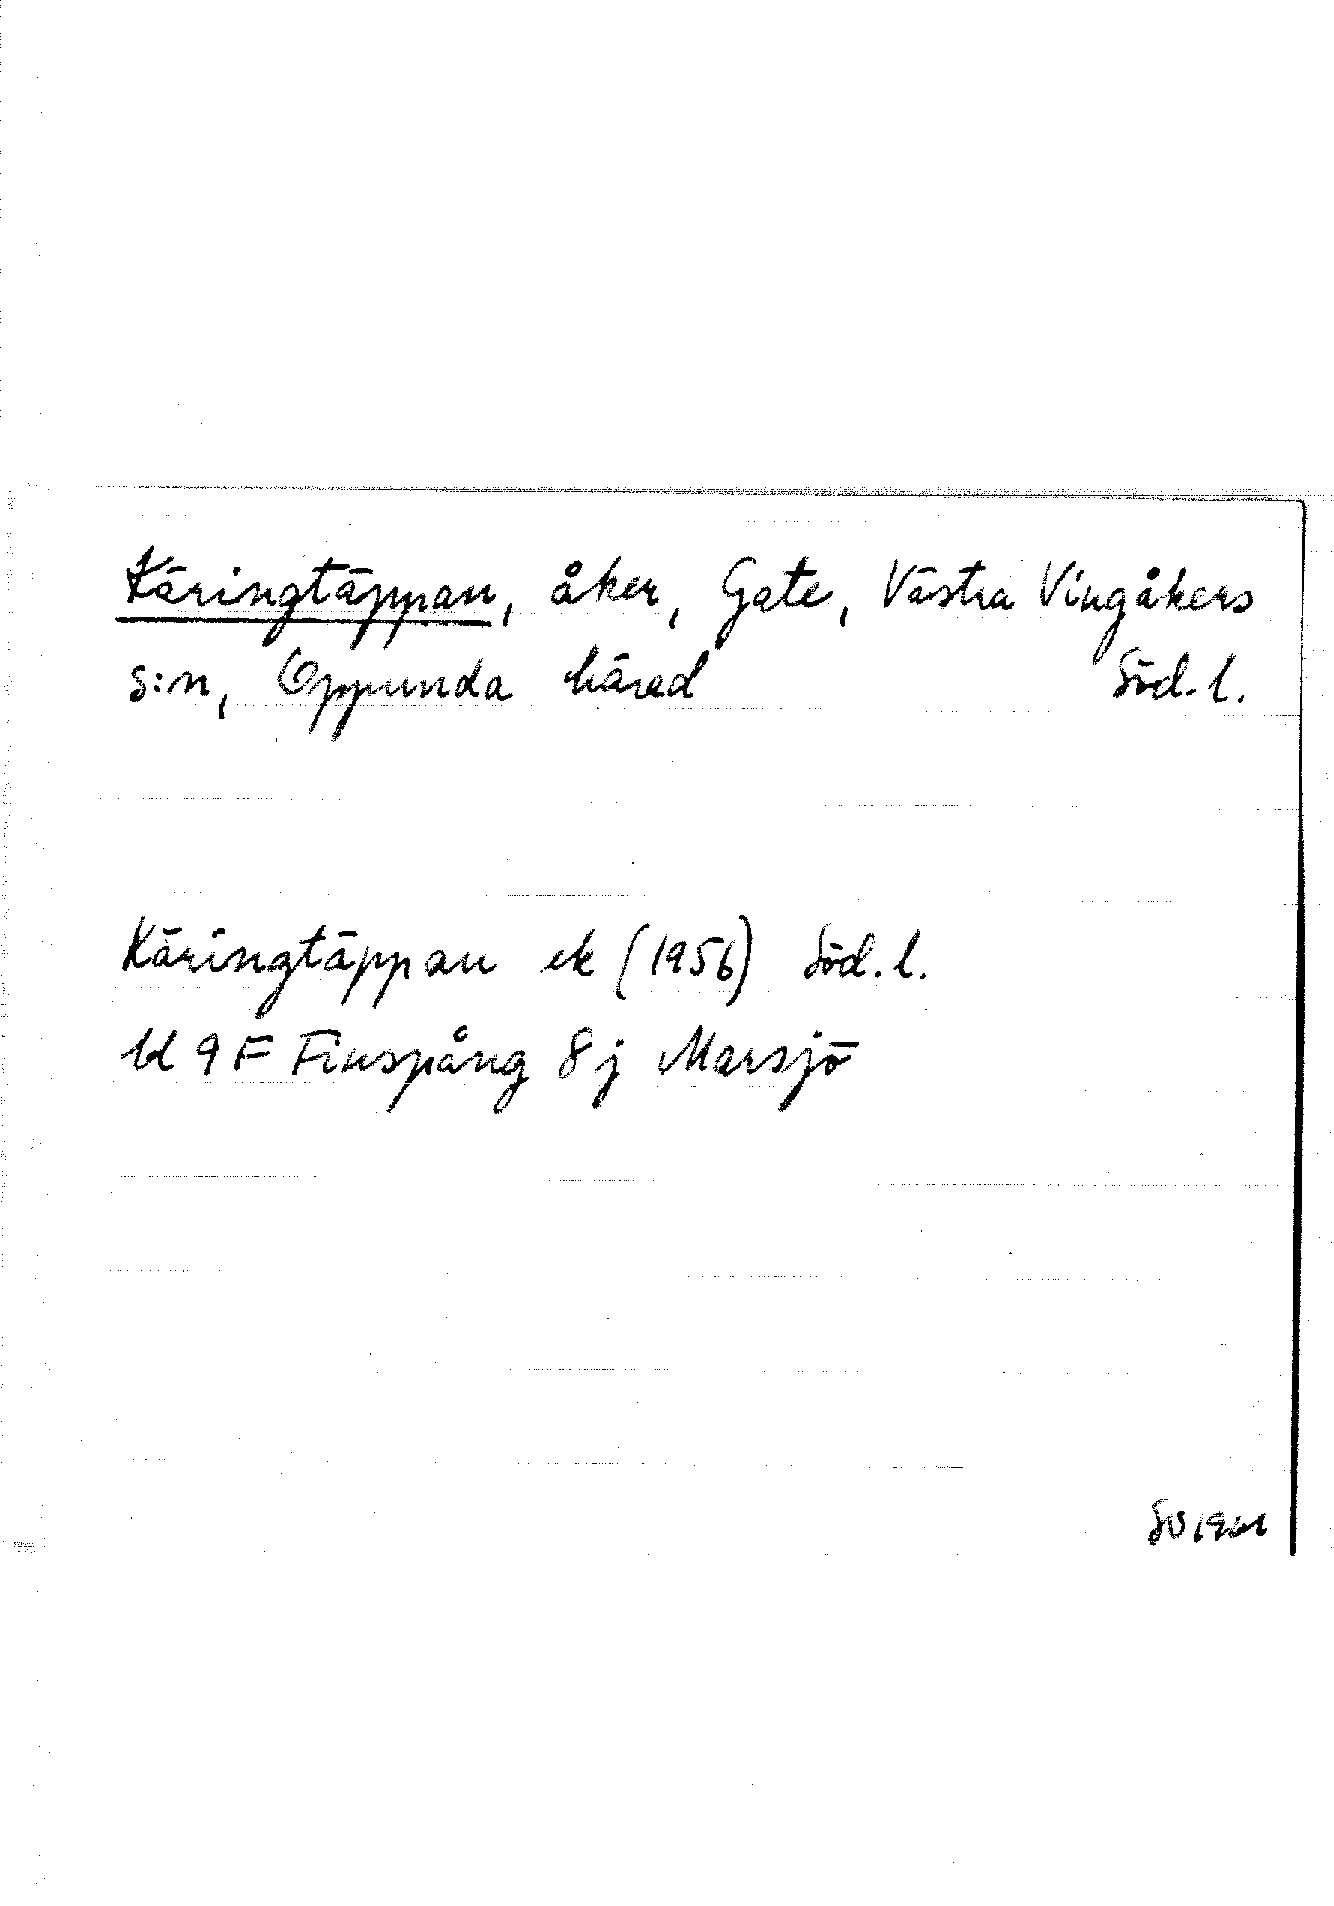 Käringtäppan, åker, Gate, Västra Vingåkers
s:n, Oppunda härad Söd. l.
Käringtäppan ek (1956) Söd. l.
bl 9F Finspång 8j Marsjö